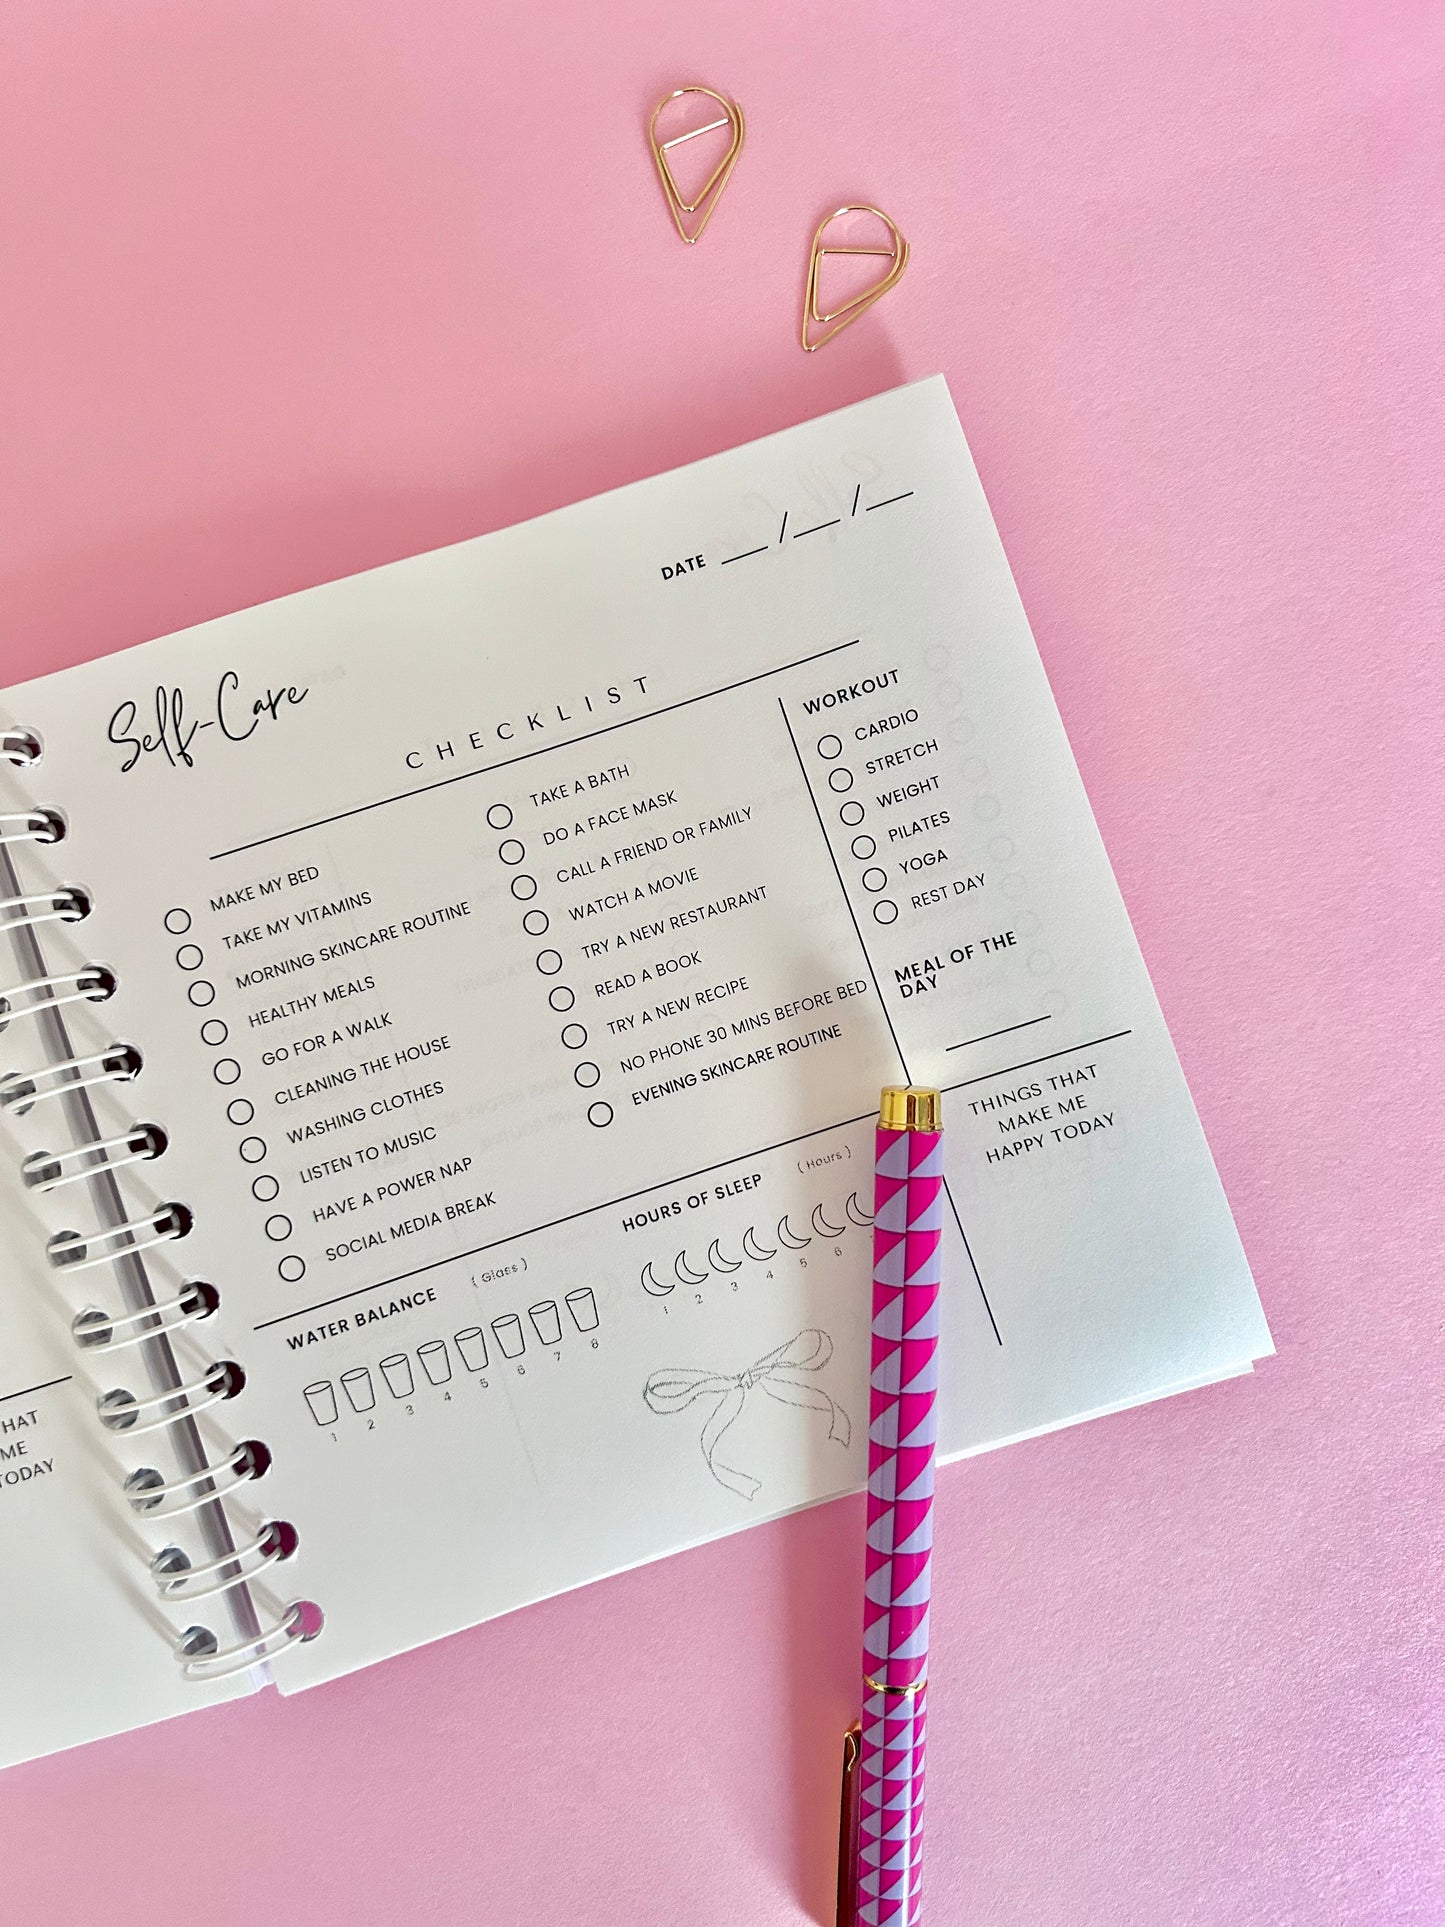 DATE __/__/__
Self-Care
CHECKLIST
MAKE MY BED
TAKE MY VITAMINS
MORNING SKINCARE ROUTINE
HEALTHY MEALS
GO FOR A WALK
CLEANING THE HOUSE
WASHING CLOTHES
LISTEN TO MUSIC
HAVE A POWER NAP
SOCIAL MEDIA BREAK
TAKE A BATH
DO A FACE MASK
CALL A FRIEND OR FAMILY
WATCH A MOVIE
TRY A NEW RESTAURANT
READ A BOOK
TRY A NEW RECIPE
NO PHONE 30 MINS BEFORE BED
EVENING SKINCARE ROUTINE
WORKOUT
CARDIO
STRETCH
WEIGHT
PILATES
YOGA
REST DAY
MEAL OF THE
DAY
WATER BALANCE (Glass)
1 2 3 4 5 6 7 8
HOURS OF SLEEP (Hours)
1 2 3 4 5 6
THINGS THAT
MAKE ME
HAPPY TODAY
HAT
ME
TODAY